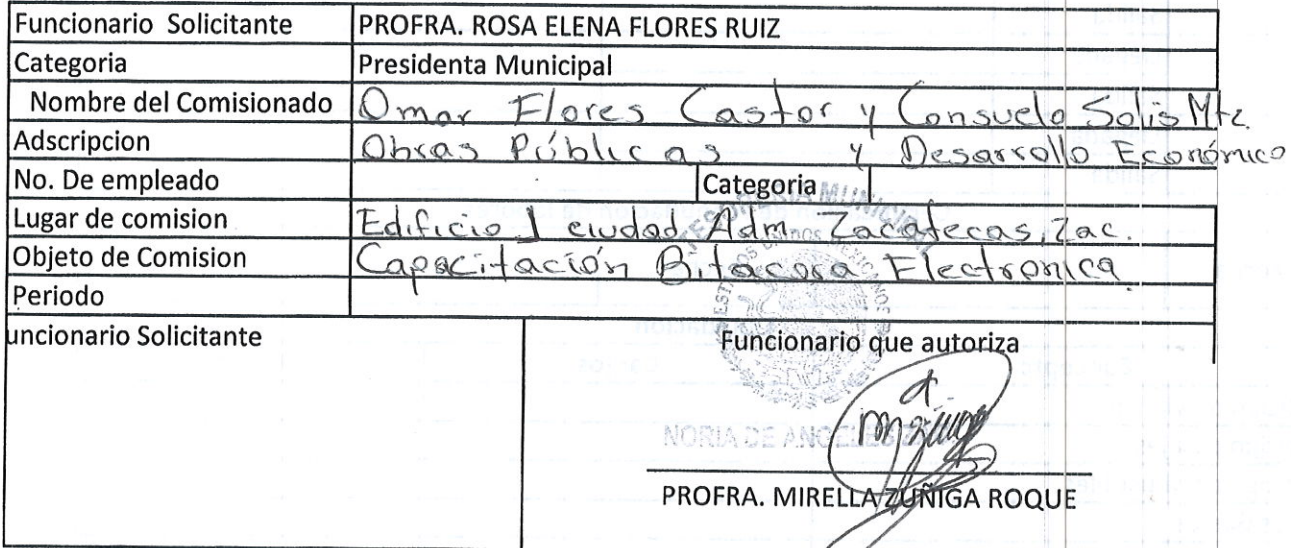 Funcionario Solicitante PROFRA. ROSA ELENA FLORES RUIZ
Categoria Presidenta Municipal
Nombre del Comisionado Omar Flores Castor y Consuelo Solis Mtz.
Adscripcion Obras Públicas y Desarrollo Económico
No. De empleado Categoria
Lugar de comision Edificio J ciudad Adm. Zacatecas, Zac.
Objeto de Comision Capacitación Bitacora Electronica
Periodo
uncionario Solicitante Funcionario que autoriza
TESORERIA MUNICIPAL
ESTADOS UNIDOS MEXICANOS
NORIA DE ANGELES
PROFRA. MIRELLA ZUÑIGA ROQUE